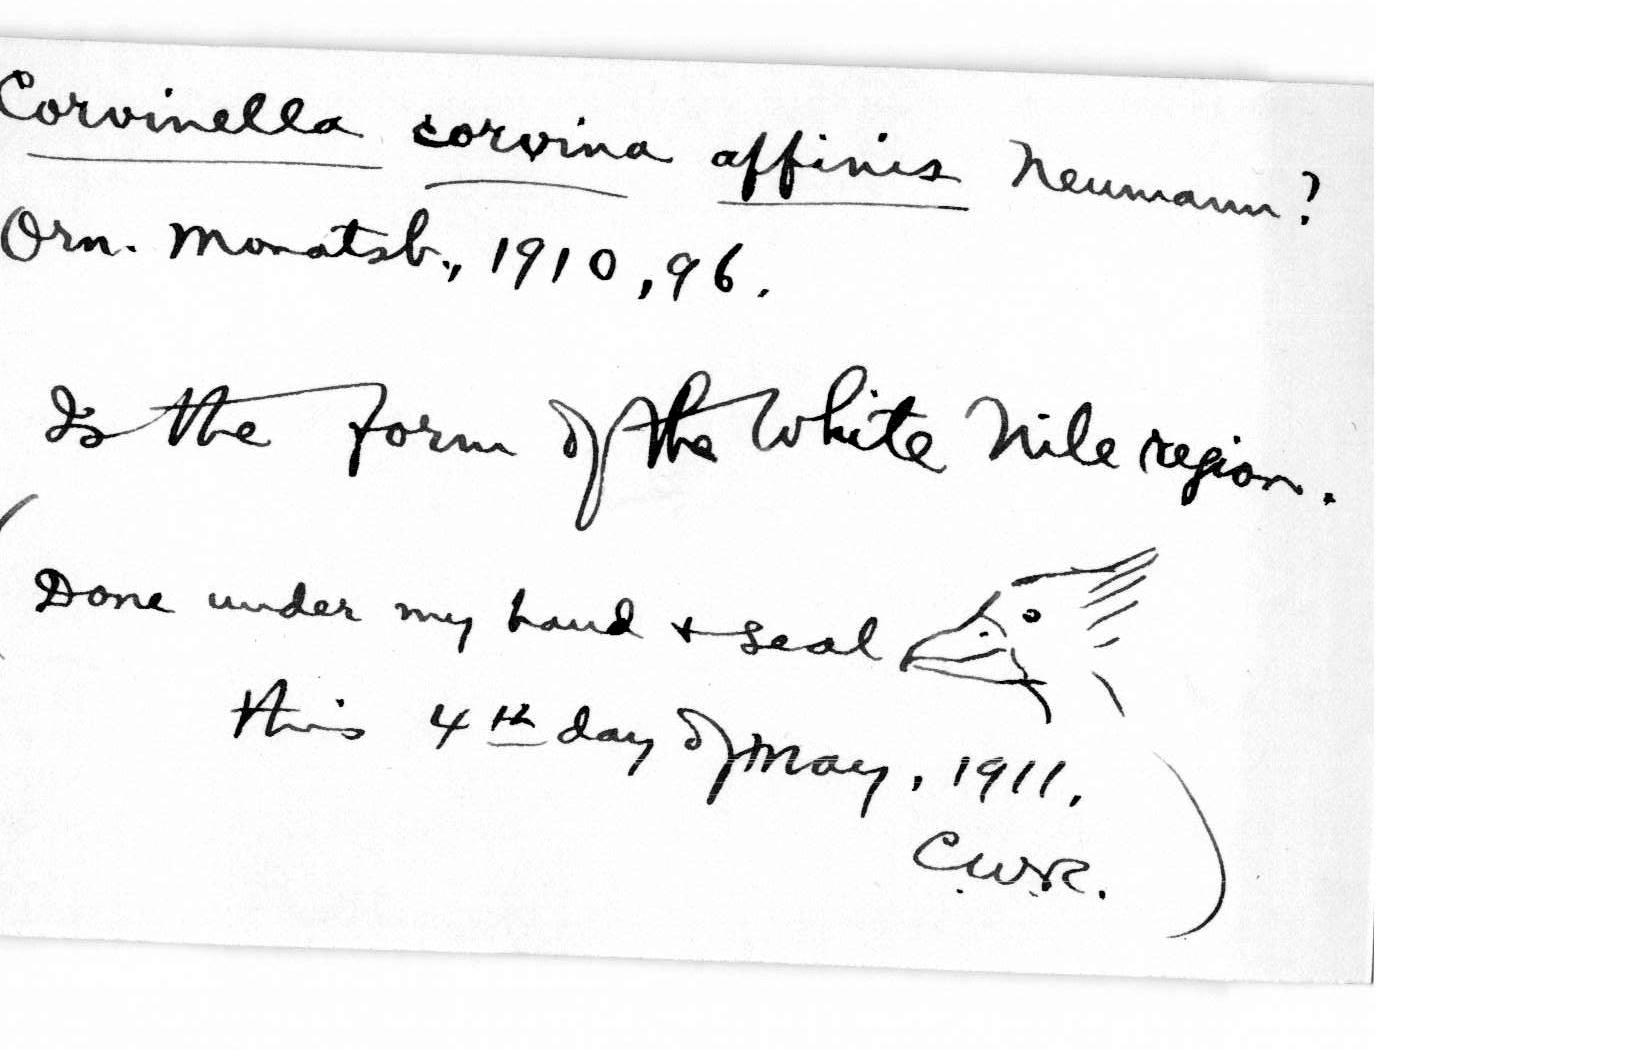 Corvinella corvina affinis Neumann?
Orn. Monatsb., 1910, 96.
Is the form of the White Nile region.
(Done under my hand + seal
this 4th day of May, 1911.
C.W.R.)